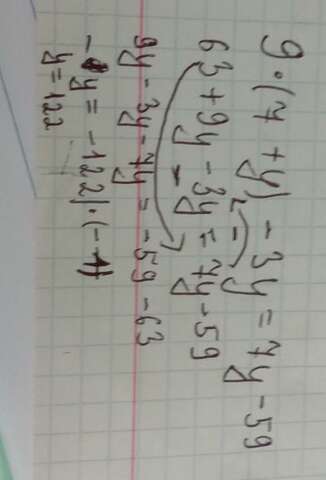 9·(7+y)-3y=7y-59
63+9y-3y=7y-59
9y-3y-7y=-59-63
-y=-122|·(-1)
y=122